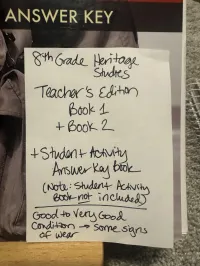 ANSWER KEY
8th Grade Heritage
Studies
Teacher's Editon
Book 1
+ Book 2
+ Student Activity
Answer Key Book
(Note: Student Activity
Book not included)
Good to Very Good
Condition → some signs
of wear